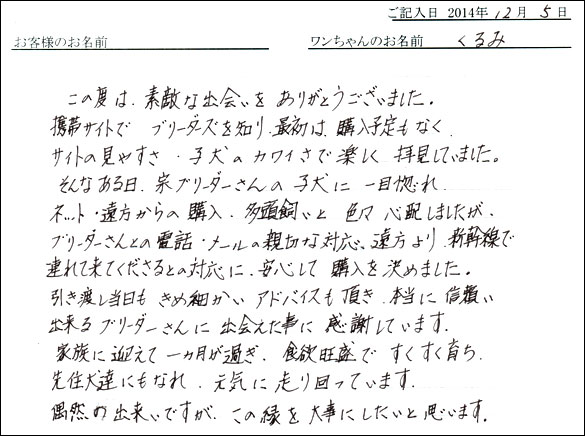 ご記入日 2014年 12月 5日
お客様のお名前 ワンちゃんのお名前 くるみ
この度は、素敵な出会いをありがとうございました。
携帯サイトで ブリーダーズを知り、最初は、購入予定もなく、
サイトの見やすさ・子犬のカワイさで楽しく 拝見していました。
そんなある日、某ブリーダーさんの子犬に 一目惚れ、
ネット・遠方からの購入、多頭飼いと 色々 心配しましたが、
ブリーダーさんとの電話・メールの親切な対応、遠方より、新幹線で
連れて来てくださるとの対応に、安心して 購入を決めました。
引き渡し当日も きめ細かい アドバイスも頂き、本当に 信頼い
出来る ブリーダーさんに 出会えた事に 感謝しています。
家族に迎えて 一ヵ月が過ぎ、食欲旺盛で すくすく育ち、
先住犬達にもなれ、元気に 走り回っています。
偶然の出来いですが、この縁を大事にしたいと思います。